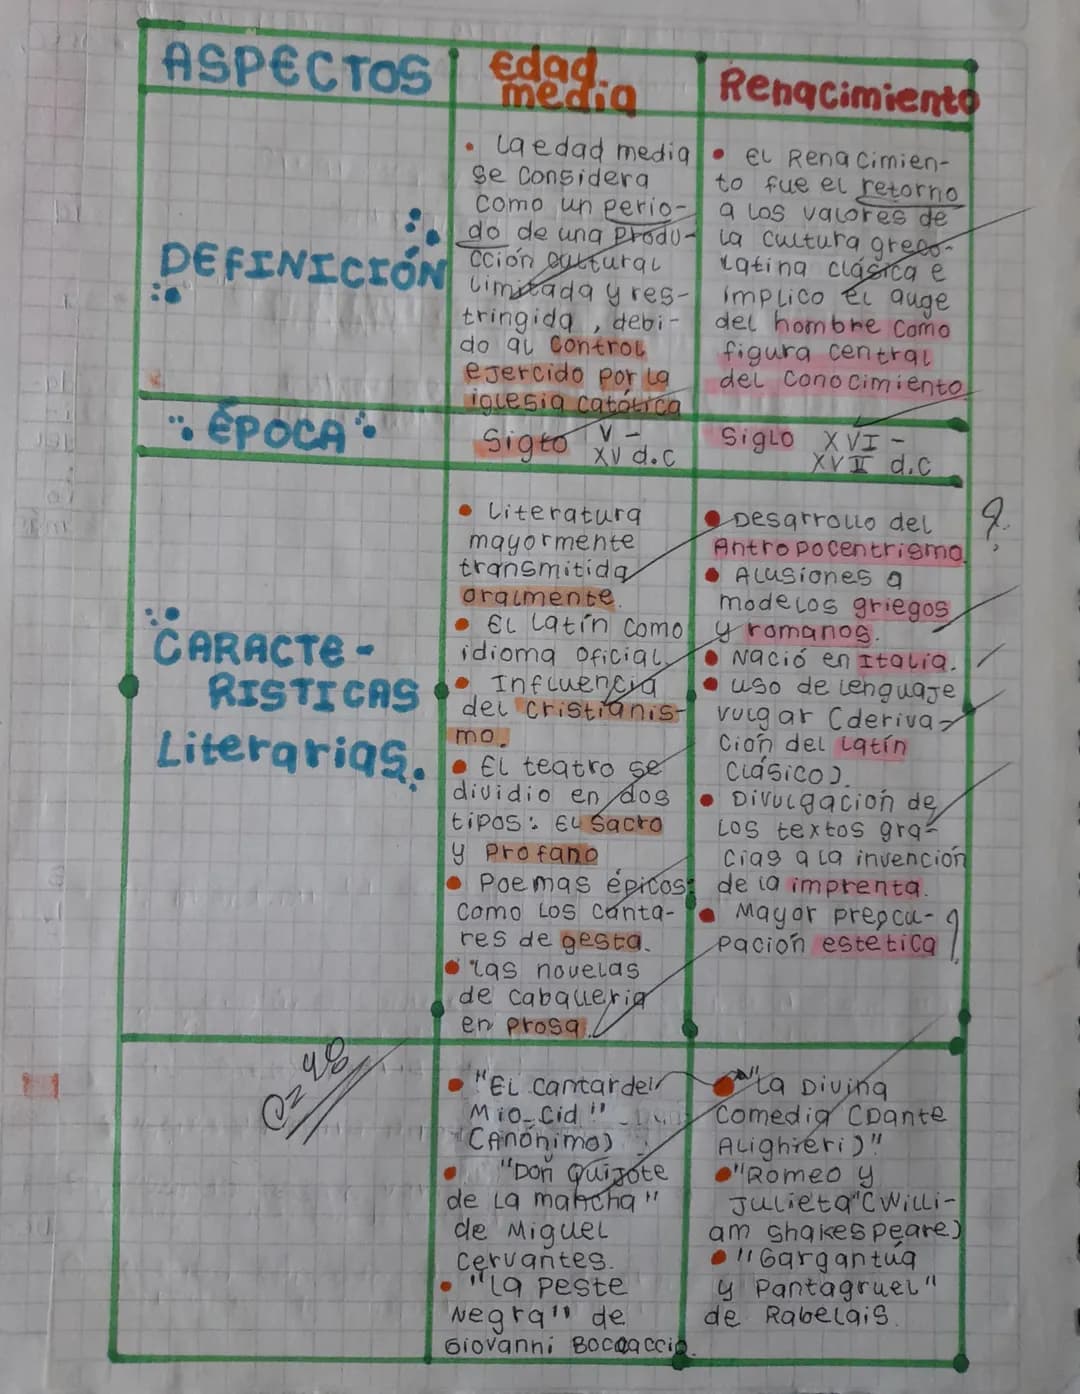 ASPECTOS
Edad
media
Renacimiento
DEFINICIÓN
• La edad media
se considera
como un perio-
do de una Produ-
cción cultural
limitada y res-
tringida, debi-
do al control
ejercido por la
iglesia católica
• El Renacimien-
to fue el retorno
a los valores de
la cultura greco-
latina clásica e
implico el auge
del hombre como
figura central
del conocimiento
ÉPOCA
Siglo V -
XV d.C
Siglo XVI -
XVII d.C
CARACTE-
RISTICAS
Literarias.
• Literatura
mayormente
transmitida
oralmente.
• El Latín como
idioma oficial.
• Influencia
del cristianis-
mo.
• El teatro se
dividio en dos
tipos: El Sacro
y Profano
• Poemas épicos:
como los canta-
res de gesta.
• las novelas
de caballeria
en prosa.
• Desarrollo del
Antropocentrismo.
• Alusiones a
modelos griegos
y romanos.
• Nació en Italia.
• uso de lenguaje
vulgar (deriva-
ción del latín
Clásico).
• Divulgación de
los textos gra-
cias a la invención
de la imprenta.
• Mayor preocu-
pación estetica
?
• "El cantar del
Mio Cid"
(Anónimo)
• "Don Quijote
de la mancha"
de Miguel
Cervantes.
• "La peste
Negra" de
Giovanni Boccaccio.
• "La Divina
Comedia (Dante
Alighieri)"
• "Romeo y
Julieta" (Willi-
am shakespeare)
• "Gargantúa
y Pantagruel"
de Rabelais.